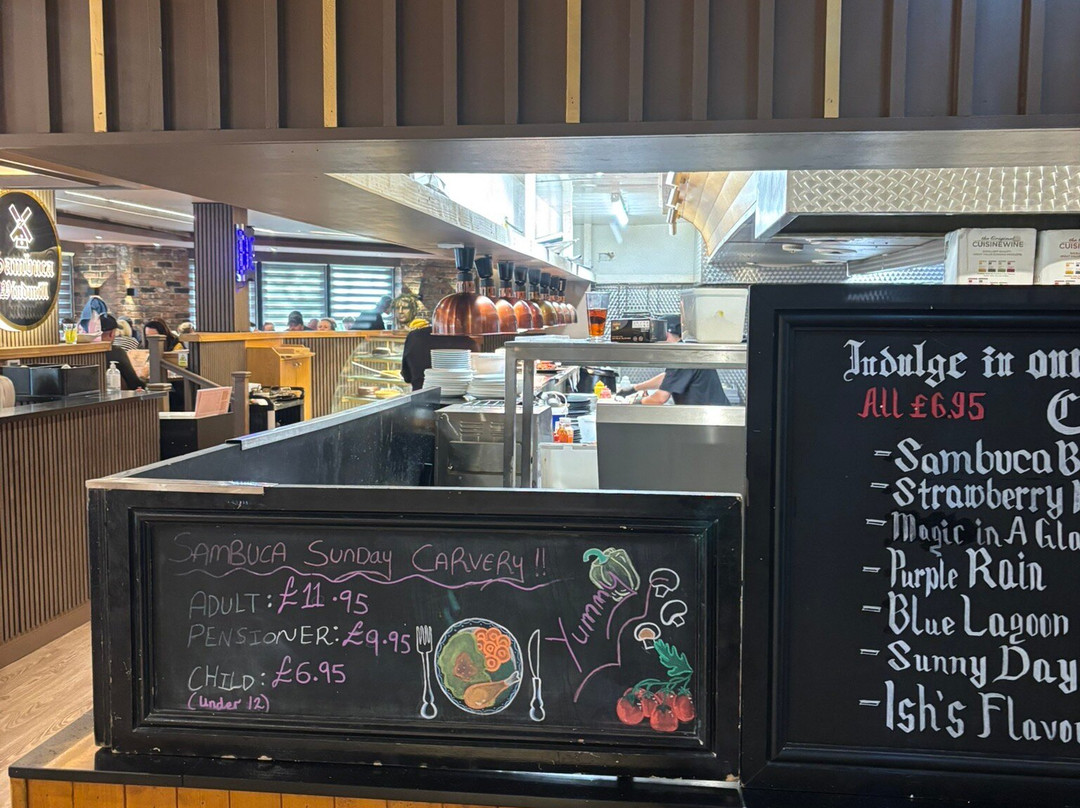 Sambuca
Windmill
the Original
CUISINEWINE
SAMBUCA SUNDAY CARVERY!!
ADULT: £11.95
PENSIONER: £9.95
CHILD: £6.95
(under 12)
Yummy
Indulge in our
All £6.95
C
- Sambuca B
- Strawberry
- Magic in A Gla
- Purple Rain
- Blue Lagoon
- Sunny Day
- Ish's Flavou